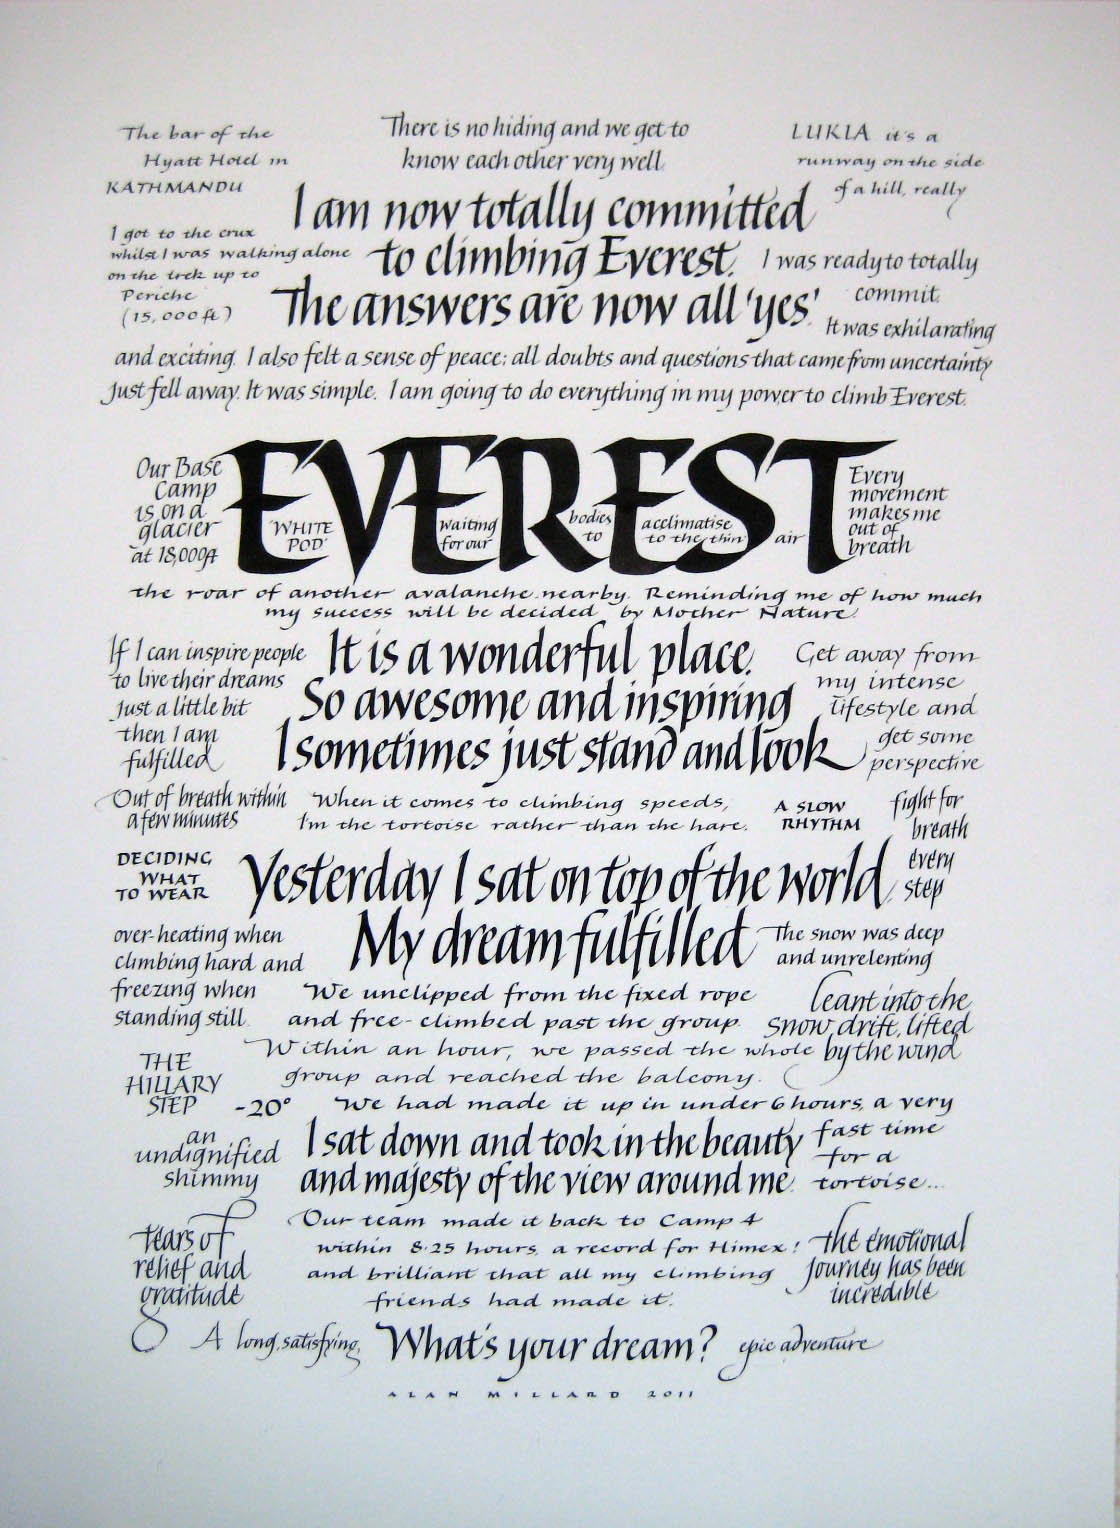 The bar of the
Hyatt Hotel in
KATHMANDU
There is no hiding and we get to
know each other very well.
LUKLA it's a
runway on the side
of a hill, really
I am now totally committed
to climbing Everest.
The answers are now all 'yes'.
I got to the crux
whilst I was walking alone
on the trek up to
Periche
(15,000 ft)
I was ready to totally
commit.
It was exhilarating
and exciting. I also felt a sense of peace; all doubts and questions that came from uncertainty
just fell away. It was simple. I am going to do everything in my power to climb Everest.
Our Base
Camp
is on a
glacier
at 18,000ft
EVEREST
'WHITE
POD'
waiting
for our
bodies
to
acclimatise
to the thin
air
Every
movement
makes me
out of
breath
the roar of another avalanche nearby. Reminding me of how much
my success will be decided by Mother Nature.
If I can inspire people
to live their dreams
just a little bit
then I am
fulfilled
It is a wonderful place.
So awesome and inspiring
I sometimes just stand and look
Get away from
my intense
lifestyle and
get some
perspective
Out of breath within
a few minutes
When it comes to climbing speeds,
I'm the tortoise rather than the hare.
A SLOW
RHYTHM
fight for
breath
every
step
DECIDING
WHAT
TO WEAR
Yesterday I sat on top of the world.
My dream fulfilled
over-heating when
climbing hard and
freezing when
standing still.
The snow was deep
and unrelenting
We unclipped from the fixed rope
and free-climbed past the group.
leant into the
snow drift, lifted
by the wind
Within an hour, we passed the whole
group and reached the balcony.
THE
HILLARY
STEP
-20°
We had made it up in under 6 hours, a very
fast time
for a
tortoise...
an
undignified
shimmy
I sat down and took in the beauty
and majesty of the view around me.
tears of
relief and
gratitude
Our team made it back to Camp 4
within 8·25 hours, a record for Himex!
and brilliant that all my climbing
friends had made it.
the emotional
journey has been
incredible
A long, satisfying,
What's your dream?
epic adventure
ALAN MILLARD 2011